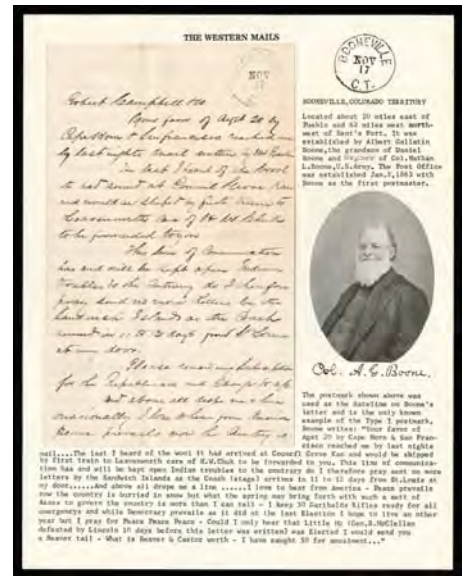 THE WESTERN MAILS
BOONEVILLE
NOV
17
C.T.
NOV
17
Robert Campbell
Your favor of Agst 20 by
Cape Horn & San Francisco reached me
by last nights mail
In last I heard of the wool
it had arrived at Council Grove Kan
and would be shiped by first train to
Leavenworth care of
to be forwarded to you
This line of Communication
has and will be kept open Indian
troubles to the Contrary do I therefore
pray send no more letters by the
Sandwich Islands as the Coach
arrives in 11 to 12 days from St. Louis
at my door.
Please
for the Republican and Charge to
and above all drope me a line
occasionally I love to hear from America
BOONEVILLE, COLORADO TERRITORY
Located about 20 miles east of
Pueblo and 62 miles west north-
west of Bent's Fort. It was
established by Albert Gallatin
Boone, the grandson of Daniel
Boone and nephew of Col. Nathan
L. Boone, U.S. Army. The Post Office
was established Jan. 2, 1863 with
Boone as the first postmaster.
Col. A.G. Boone.
The postmark shown above was
used as the dateline on Boone's
letter and is the only known
example of the Type I postmark.
Boone writes: "Your favor of
Agst 20 by Cape Horn & San Fran-
cisco reached me by last nights
mail....The last I heard of the wool it had arrived at Council Grove Kan and would be shipped
by first train to Leavenworth care of H.W.Chuk to be forwarded to you. This line of communica-
tion has and will be kept open Indian troubles to the contrary do I therefore pray sent no more
letters by the Sandwich Islands as the Coach (stage) arrives in 11 to 12 days from St.Louis at
my door.....And above all drope me a line .......I love to hear from America - Peace prevails
now the country is burried in snow but what the spring may bring forth with such a sett of
Asses to govern the country is more than I can tell - I keep 50 Garibaldi Rifles ready for all
emergencys and while Democracy prevails as it did at the last Election I hope to live an other
year but I pray for Peace Peace Peace - Could I only hear that Little Mc (Gen.B.McClellan
defeated by Lincoln 10 days before this letter was written) was Elected I would send you
a Beaver tail - What is Beaver & Castor worth - I have caught 50 for amusment..."